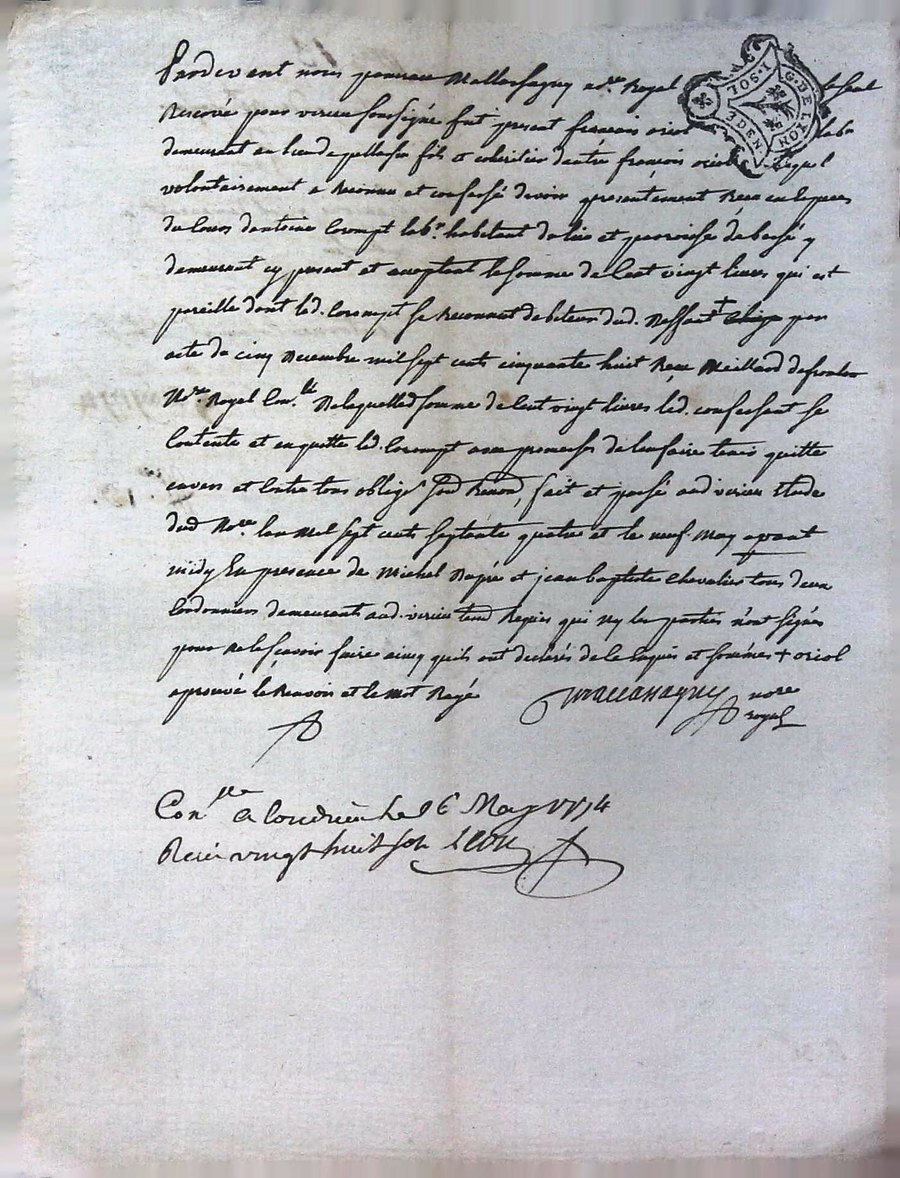 Pardevant nous Mallassagny no.re Royal
Reservé pour verien soussigné fut present françois oriol lab.r
demeurant au lieu de pellassin fils et coheritier dautre françois oriol lequel
volontairement a Reconnu et confessé davoir presentement Receu en especes
du Cours dantoine Corompt lab.r habitant dudit lieu et paroisse de bessé y
demeurant cy present et acceptant la somme de Cent vingt livres qui est
pareille dont led. Corompt se Reconnut debiteur dud. + par
acte du cinq Decembre mil sept cents cinquante huit Receu Meillard
N.re Royal Con.lé De laquelle somme de Cent vingt livres led. confessant se
Contente et en quitte led. Corompt avec promesses de len faire tenir quitte
envers et Contre tous oblige.s soud Renon.s fait et passé aud verien Etude
dud No.re Lan Mil sept cents septante quatre et le neuf May avant
midy En presence de Michel Rapie et jean baptiste Chevalier tous deux
Cordonniers demeurants aud. verien qui ny les parties n'ont signés
pour ne le scavoir faire ainsy quils ont declarés de ce enquis et sommés + oriol
aprouvé le Renvois et le mot Rayé
Mallassagny nore
royal
Con.lle a Condrieu le 16 May 1774
Receu vingt huit sols
G. DE LYON
I. SOL.